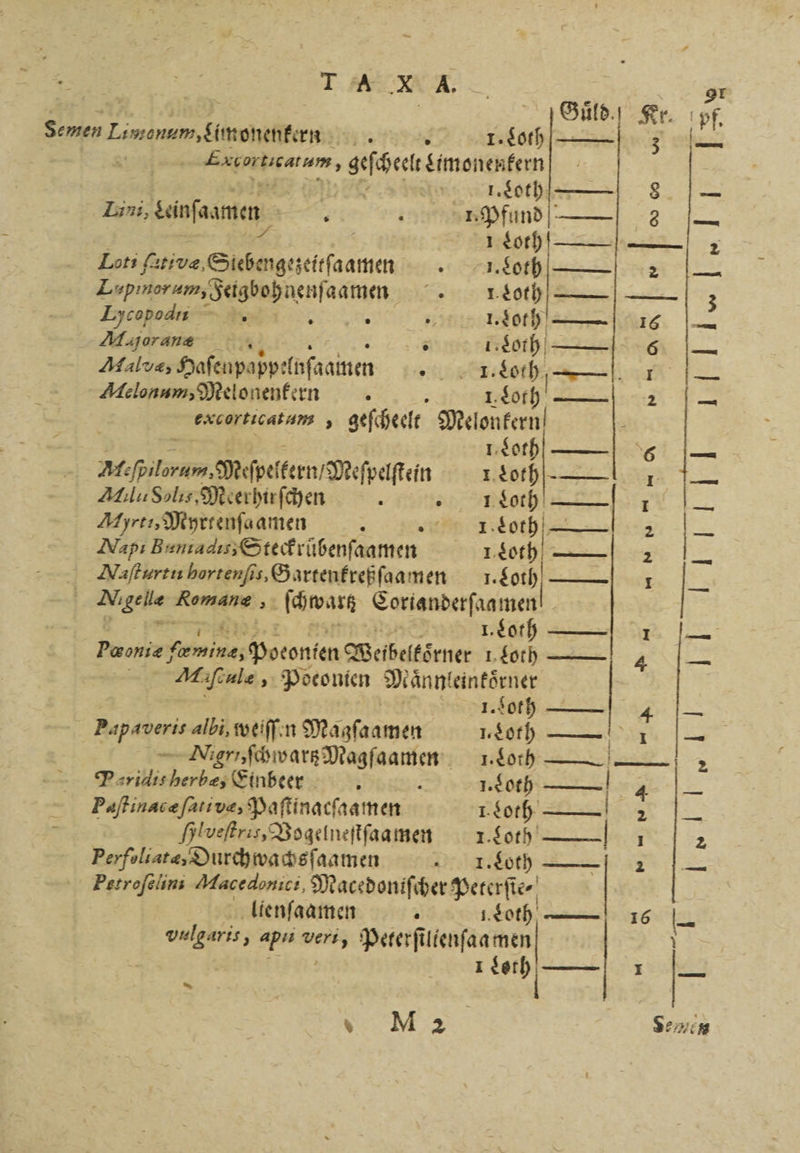 T A X A. 91
Güld. Kr. pf.
Semen Limonum, Limonenkern . . 1. Loth —— 3 —
Excorticatum, gescheelt Limonenkern
1. Loth —— 8 —
Lini, Leinsaamen . . 1. Pfund —— 8 —
1 Loth —— — 2
Loti sativæ, Siebengezeitsaamen . 1. Loth —— 2 —
Lupinorum, Feigbohnensaamen . 1 Loth —— — 3
Lycopodii . . . . 1. Loth —— 16 —
Majoranæ . . . . 1. Loth —— 6 —
Malvæ, Hasenpappelnsaamen . 1. Loth —— 1 —
Melonum, Melonenkern . . 1. Loth —— 2 —
excorticatum, gescheelt Melonkern
1 Loth —— 6 —
Mespilorum, Mespelkern/Mespelstein 1 Loth —— 1 —
Milii Solis, Meerhirschen . . 1 Loth —— 1 —
Myrti, Myrtensaamen . . 1. Loth —— 2 —
Napi Buniadis, Steckrübensaamen 1 Loth —— 2 —
Nasturtii hortensis, Gartenkreßsaamen 1. Loth —— 1 —
Nigellæ Romanæ, schwartz Coriandersaamen
1. Loth —— 1 —
Pœoniæ fœminæ, Poeonien Weibelkörner 1 Loth —— 4 —
Masculæ, Poeonien Männleinkörner
1. Loth —— 4 —
Papaveris albi, weissen Magsaamen 1. Loth —— 1 —
Nigri, schwartz Magsaamen 1. Loth —— — 2
Paridis herbæ, Einbeer . . 1. Loth —— 4 —
Pastinacæ sativæ, Pastinacsaamen 1. Loth —— 2 —
sylvestris, Vogelnestsaamen 1. Loth —— 1 2
Perfoliatæ, Durchwachssaamen . 1. Loth —— 2 —
Petroselini Macedonici, Macedonischer Petersi-
liensaamen . 1. Loth —— 16 —
vulgaris, apii veri, Petersiliensaamen
1 Loth —— 1 —
M 2 Semen